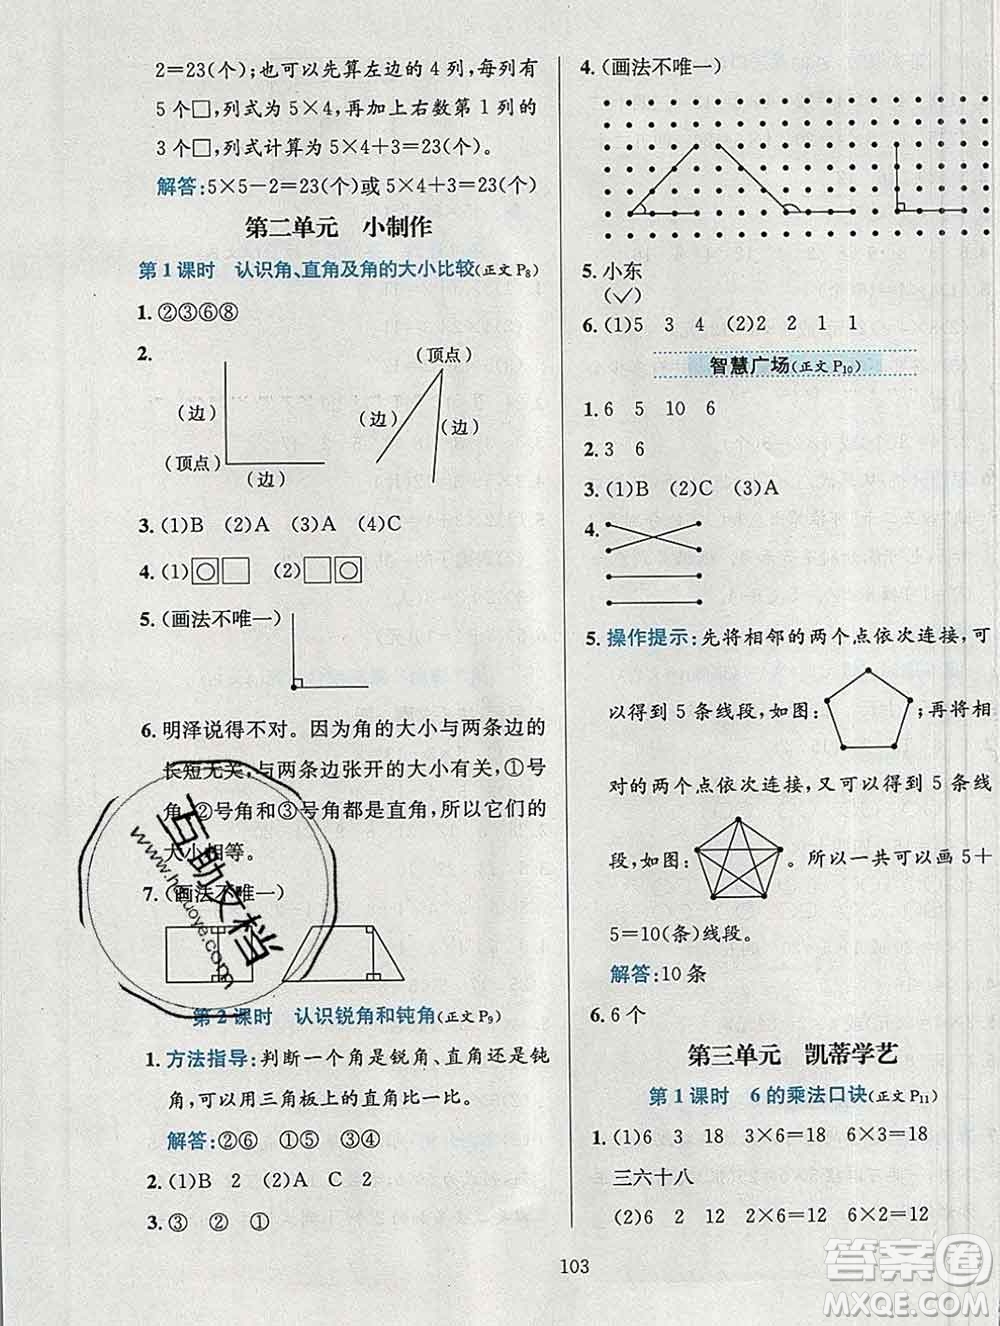 2=23(个)；也可以先算左边的 4 列，每列有
5 个□，列式为 5×4，再加上右数第 1 列的
3 个□，列式计算为 5×4+3=23(个)。
解答:5×5-2=23(个)或 5×4+3=23(个)
第二单元 小制作
第 1 课时 认识角、直角及角的大小比较(正文 P8)
1. ②③⑥⑧
2.
(顶点)
(边)
(边)
(边)
(顶点)
(边)
3. (1)B (2)A (3)A (4)C
4. (1)○□ (2)□○
5. (画法不唯一)
6. 明泽说得不对。因为角的大小与两条边的
长短无关，与两条边张开的大小有关，①号
角、②号角和③号角都是直角，所以它们的
大小相等。
7. (画法不唯一)
第 2 课时 认识锐角和钝角(正文 P9)
1. 方法指导:判断一个角是锐角、直角还是钝
角，可以用三角板上的直角比一比。
解答:②⑥ ①⑤ ③④
2. (1)B 2 (2)A C 2
3. ③ ② ①
4. (画法不唯一)
5. 小东
(✓)
6. (1)5 3 4 (2)2 2 1 1
智慧广场(正文 P10)
1. 6 5 10 6
2. 3 6
3. (1)B (2)C (3)A
4.
5. 操作提示:先将相邻的两个点依次连接，可
以得到 5 条线段，如图:；再将相
对的两个点依次连接，又可以得到 5 条线
段，如图:。所以一共可以画 5+
5=10(条)线段。
解答:10 条
6. 6 个
第三单元 凯蒂学艺
第 1 课时 6 的乘法口诀(正文 P11)
1. (1)6 3 18 3×6=18 6×3=18
三六十八
(2)6 2 12 2×6=12 6×2=12
103
互助文档
www.huzuoye.com
答案圈
MXQE.COM